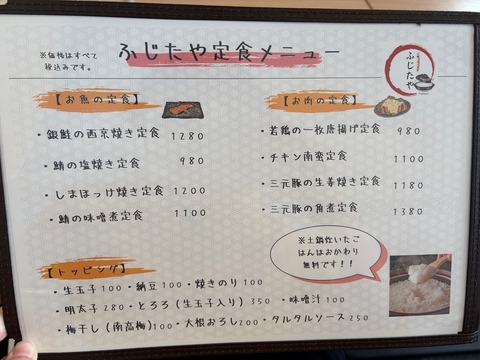 ※価格はすべて
税込みです。
ふじたや定食メニュー
ふじたや
【お魚の定食】
・銀鮭の西京焼き定食 1280
・鯖の塩焼き定食 980
・しまほっけ焼き定食 1200
・鯖の味噌煮定食 1100
【お肉の定食】
・若鶏の一枚唐揚げ定食 980
・チキン南蛮定食 1100
・三元豚の生姜焼き定食 1180
・三元豚の角煮定食 1380
※土鍋炊いたご
はんはおかわり
無料です！！
【トッピング】
・生玉子 100 ・納豆 100 ・焼きのり 100
・明太子 280 ・とろろ（生玉子入り）350 ・味噌汁 100
・梅干し（南高梅）100 ・大根おろし 200 ・タルタルソース 250